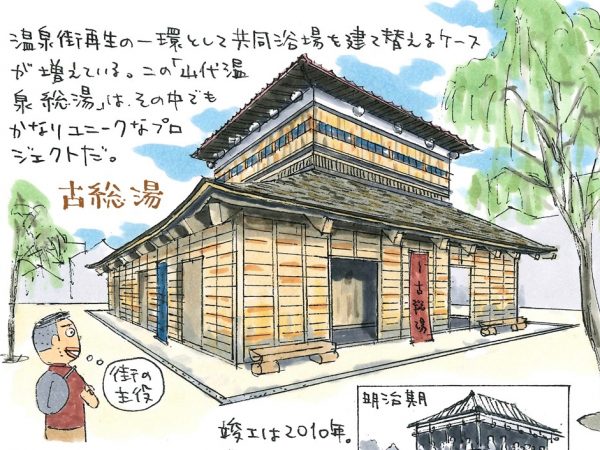 温泉街再生の一環として共同浴場を建て替えるケース
が増えている。この「山代温
泉総湯」は、その中でも
かなりユニークなプロ
ジェクトだ。
古総湯
古総湯
街の
主役
竣工は2010年。
明治期